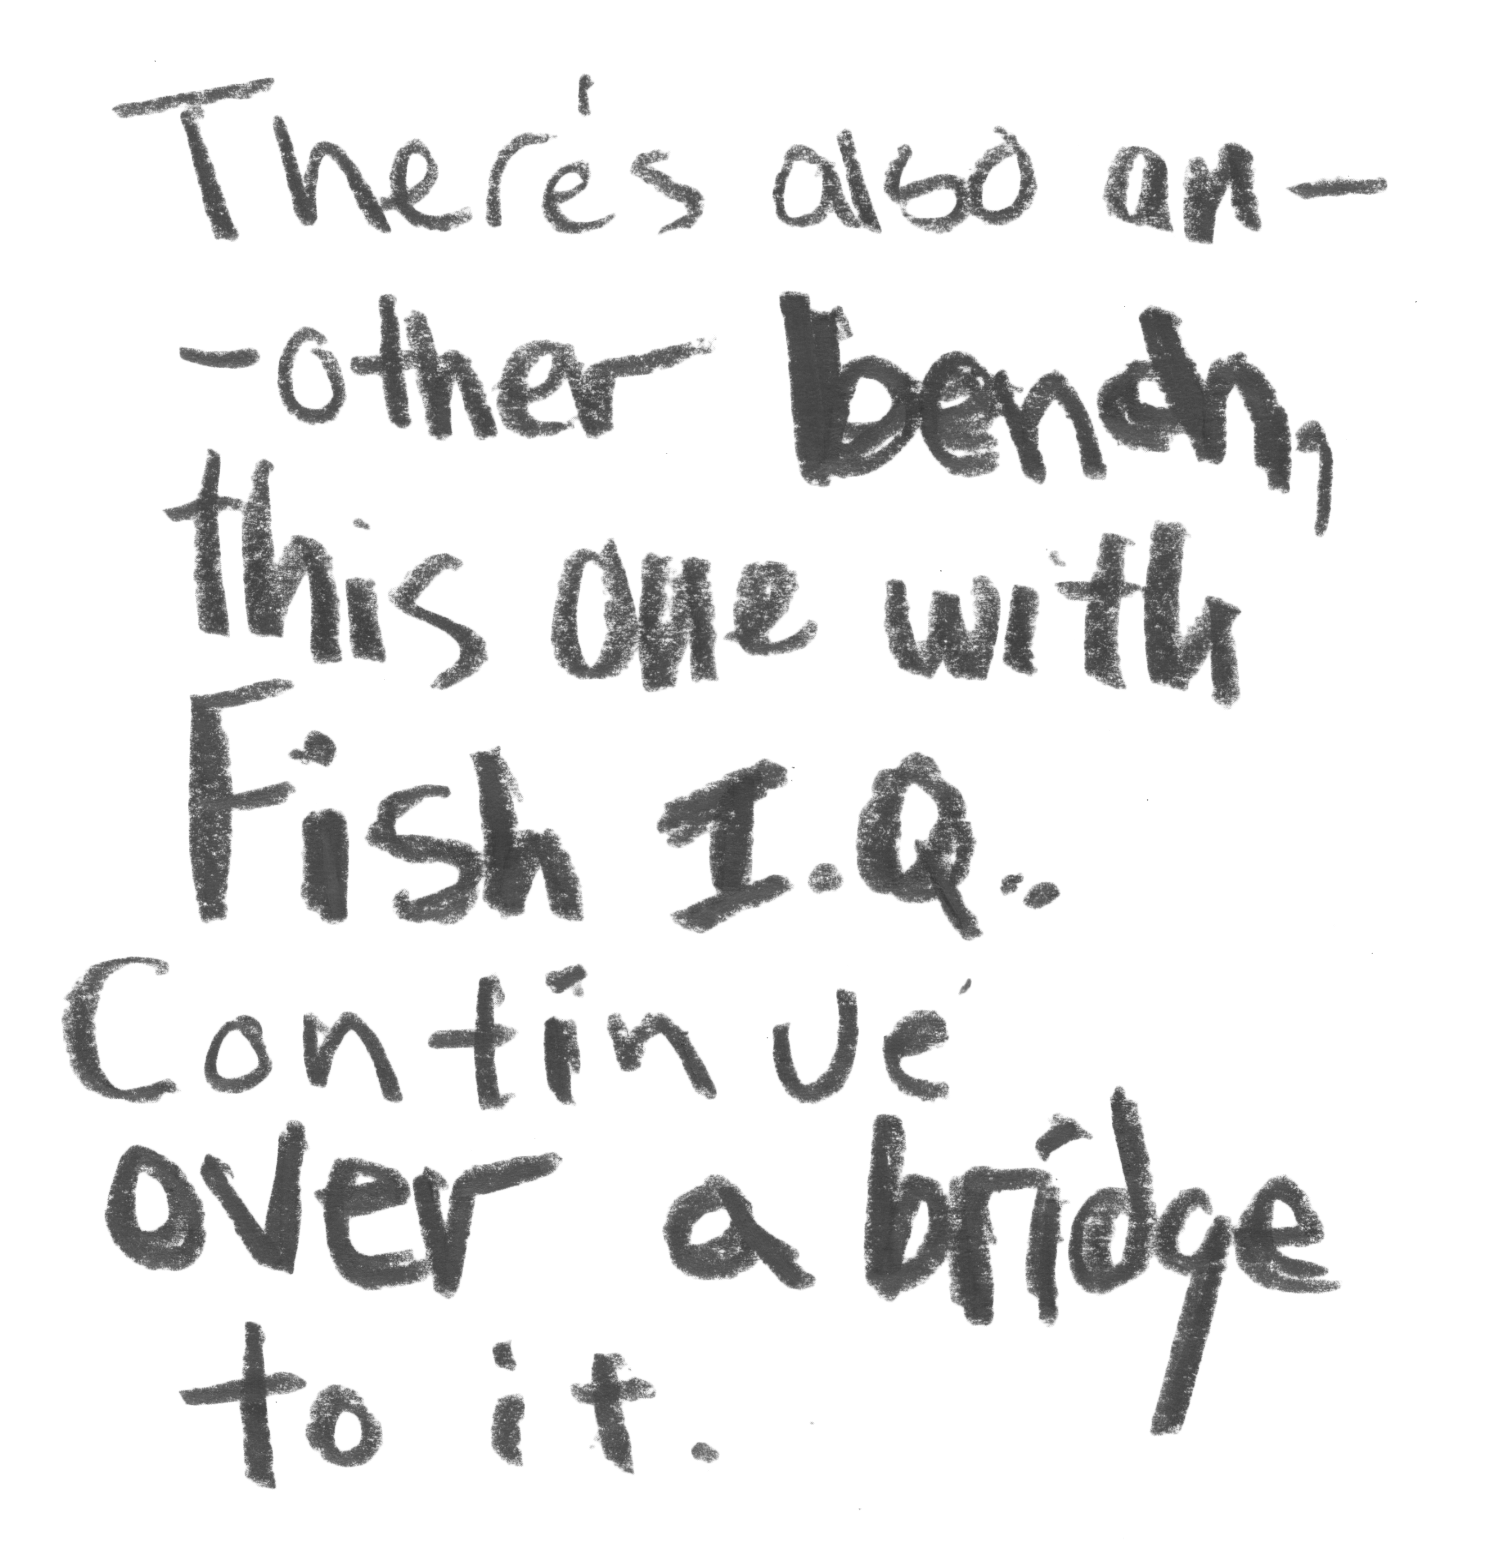 There's also an-
-other bench,
this one with
Fish I.Q..
Continue
over a bridge
to it.